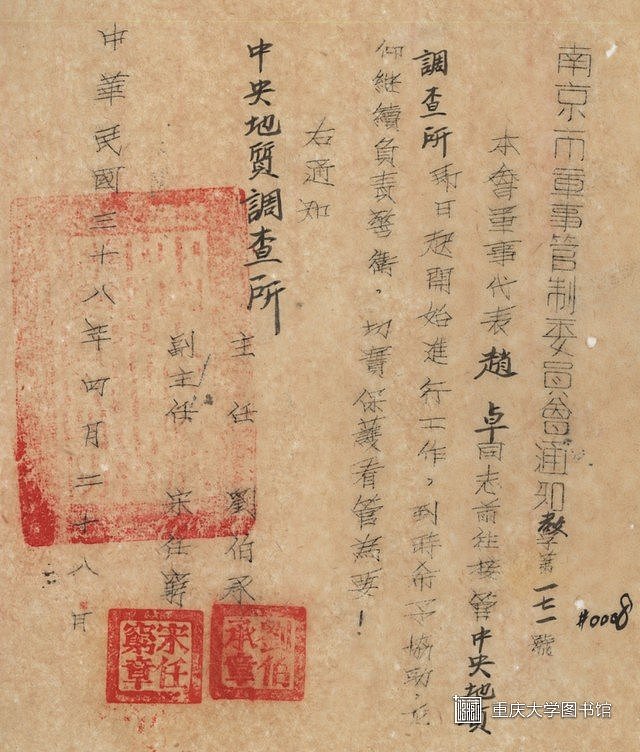 南京市軍事管制委員會通知 教字第一七一號
本會軍事代表趙卓同志前往接管中央地質
調查所即日起開始進行工作，到時希予協助，
仰繼續負責警衛，切實保護看管為要！
右通知
中央地質調查所
主任 劉伯承
副主任 宋任窮
中華民國三十八年四月二十八日
劉伯承章
宋任窮章
#0008
重庆大学图书馆